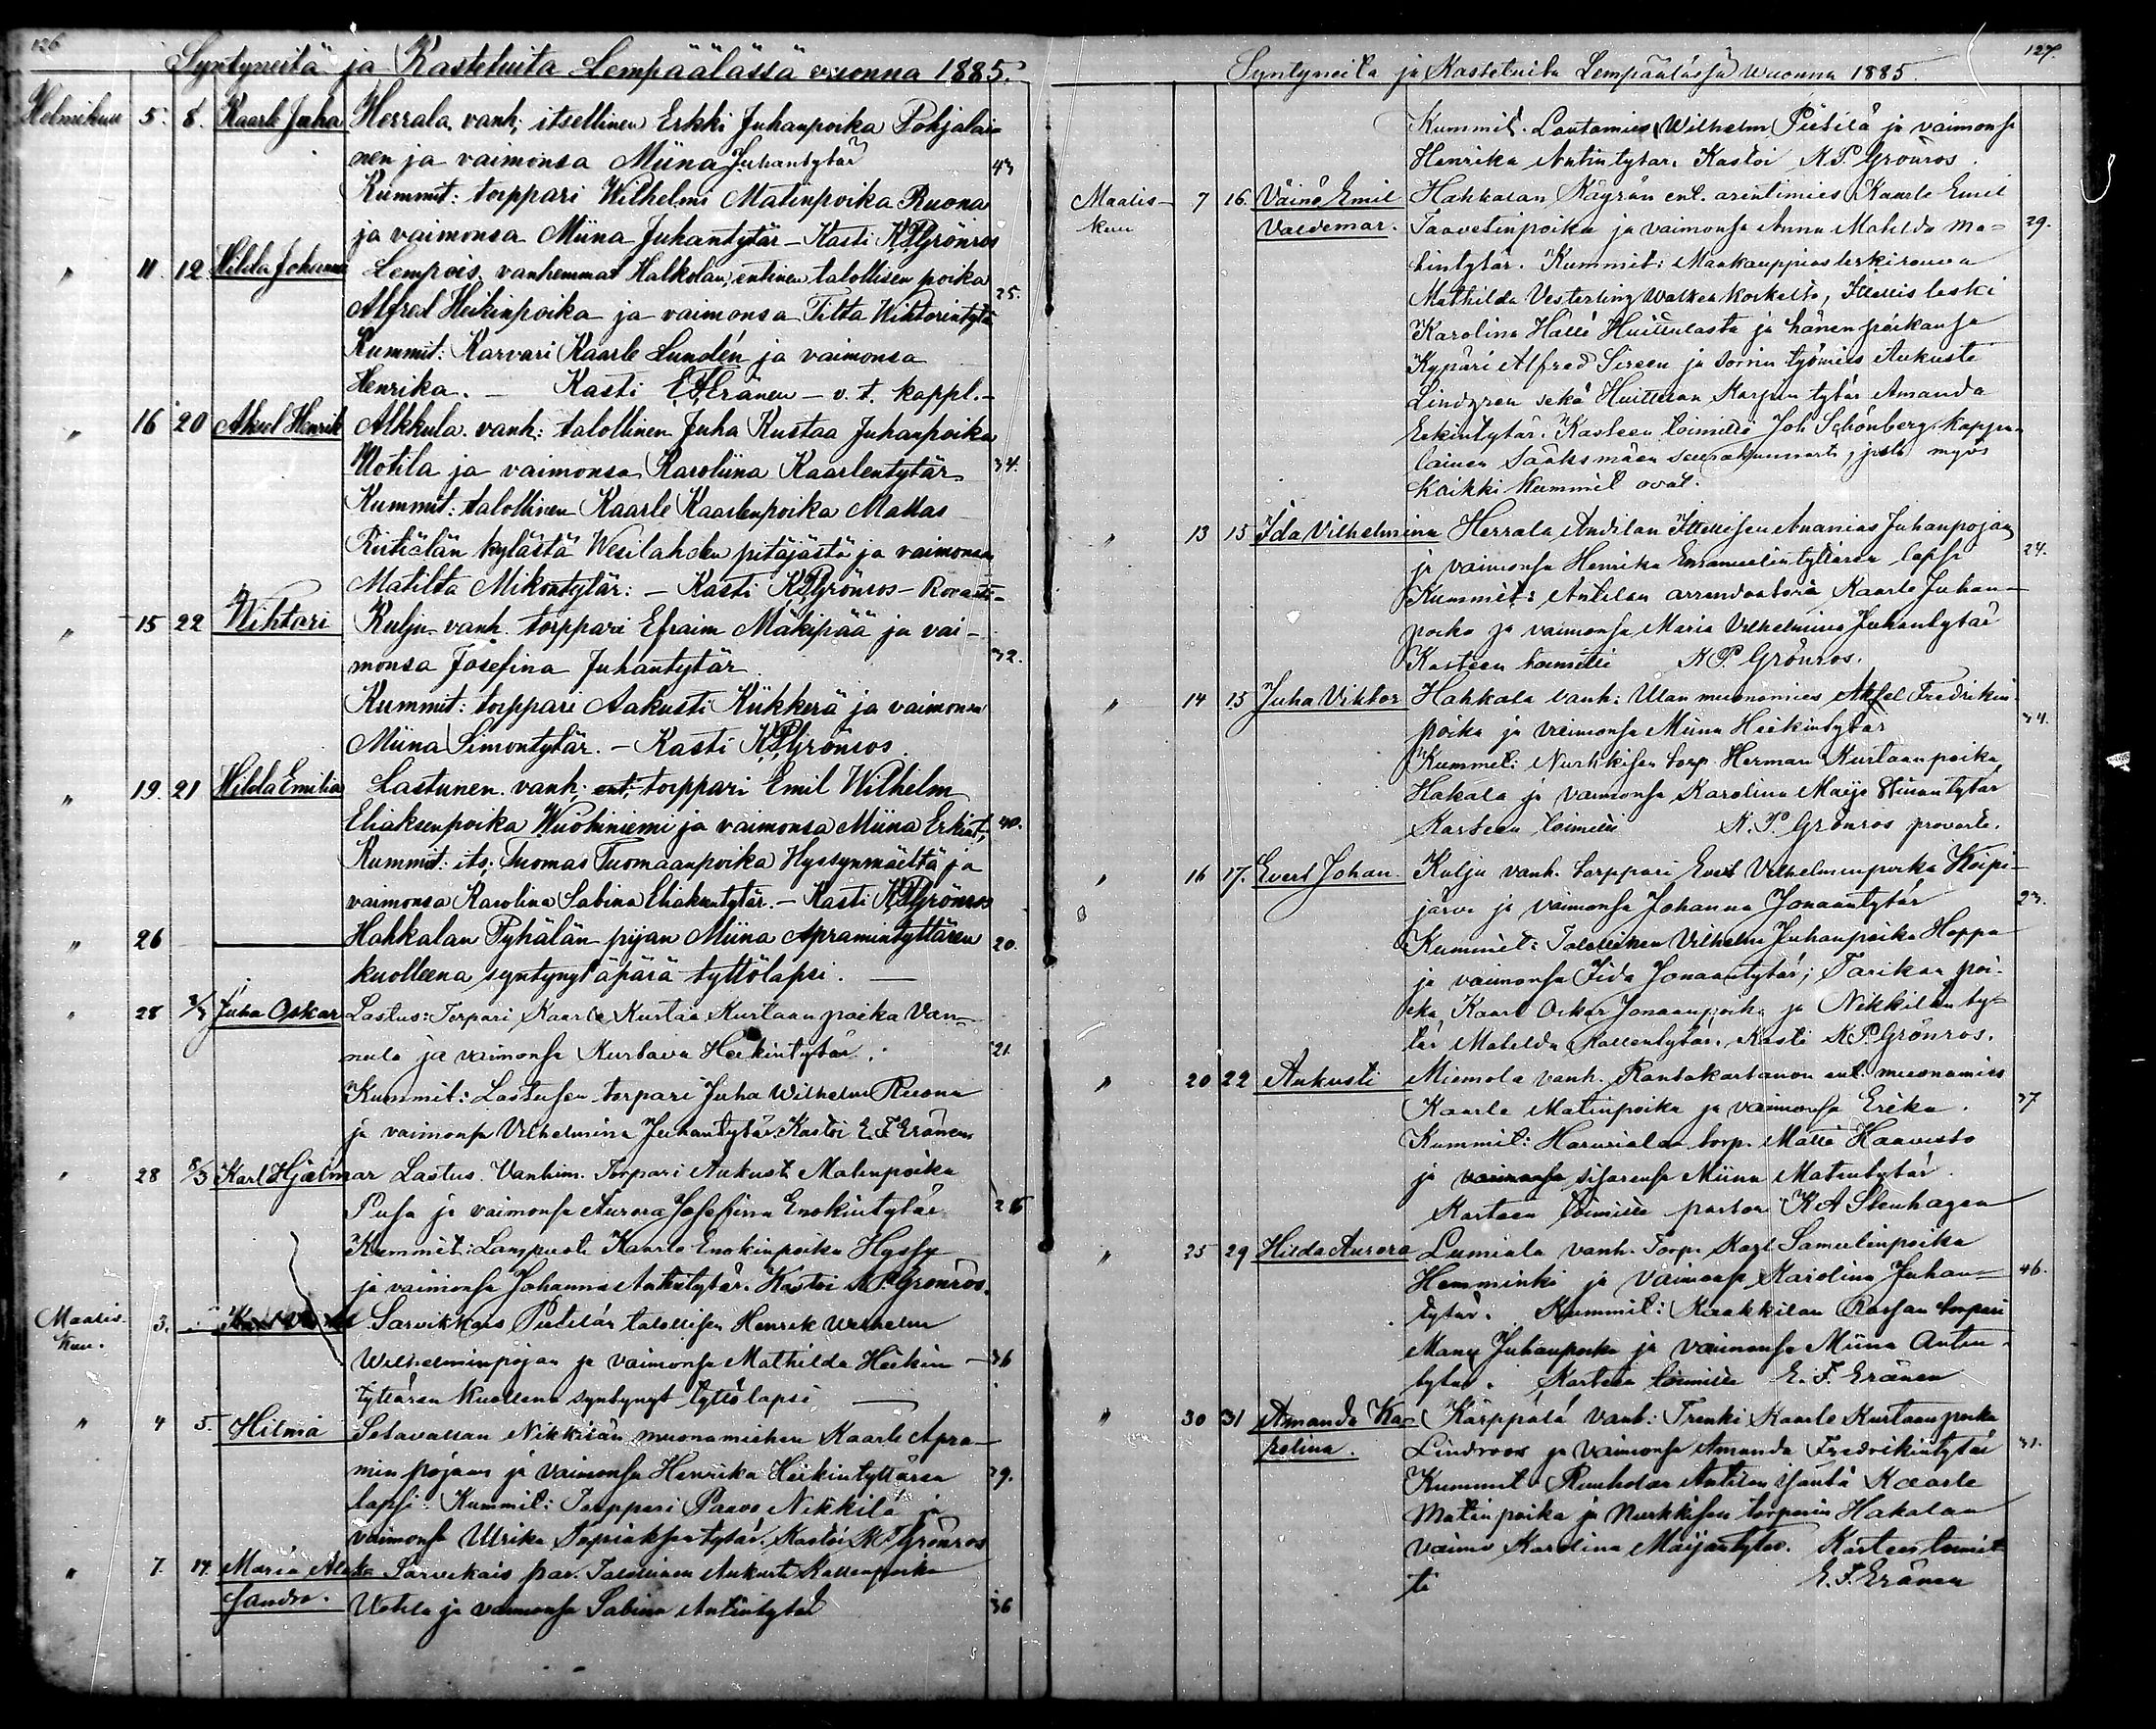 126
Syntyneitä ja Kastetuita Lempäälässä vuonna 1885.
Helmikuu 5. 8. Kaarle Juha Herrala, vanh; itsellinen Erkki Juhanpoika Pohjalai-
nen ja vaimonsa Miina Juhantytär 43
Kummit: torppari Wilhelmi Matinpoika Ruona
ja vaimonsa Miina Juhantytär – Kasti KPGrönros
" 11. 12. Hilda Johanna Lempois, vanhemmat Halkolan, entinen talollisen poika 25.
Alfred Heikinpoika ja vaimonsa Tilta Wihtorintytä
Kummit: Karvari Kaarle Lundén ja vaimonsa
Henrika. – Kasti EFEränen – v. t. kappl. –
" 16 20 Aksel Henrik Alkkula. vanh: talollinen Juha Kustaa Juhanpoika
Uotila ja vaimonsa Karoliina Kaarlentytär 34.
Kummit: talollinen Kaarle Kaarlenpoika Mattas
Ristiälän kylästä Wesilahden pitäjästä ja vaimonsa
Matilta Mikontytär: – Kasti KPGrönros – Rovasti –
" 15 22 Wihtari Kulju – vanh. torppari Efraim Mäkipää ja vai-
monsa Josefina Juhantytär 32.
Kummit: torppari Aakusti Kükkerä ja vaimonsa
Miina Simontytär. – Kasti KPGrönros.
" 19. 21 Hilda Emilia Lastunen. vanh; ent; torppari Emil Wilhelm
Eliaksenpoika Wuohiniemi ja vaimonsa Miina Erkint; 40.
Kummit: its; Tuomas Tuomaanpoika Hyssynmäeltä ja
vaimonsa Karolina Sabina Eliakentytär. – Kasti KPGrönros
" 26 Hahkalan Pyhälän pijan Miina Apramintyttären 20.
kuolleena syntynyt äpärä tyttölapsi. –
" 28 3/3 Juha Oskar Lastus: Torpari Kaarle Kustaa Kustaan poika Van-
nula ja vaimonsa Kustava Heikintytär. 21.
Kummit: Lastusen torpari Juha Wilhelm Ruona
ja vaimonsa Vilhelmina Juhantytär. Kastoi E. F. Eränen
" 28 8/3 Karl Hjalmar Lastus. Vanhim. Torpari Aukusti Matinpoika
Pusa ja vaimonsa Aurora Josefina Enokintytär 26
Kummit: Lampuoti Kaarle Enokinpoika Hyssy
ja vaimonsa Johanna Antintytär. Kastoi K. P. Grönros.
Maalis-
kuu. 3. Sarvikkais Pietilän talollisen Henrik Wilhelm
Wilhelminpojan ja vaimonsa Mathilda Heikin – 36
tyttären kuollena syntynyt tyttölapsi
" 4 5. Hilma Sotavallan Nikkilän muonamiehen Kaarle Apra-
min pojan ja vaimonsa Henrika Heikintyttären 39.
lapsi. Kummit: Torppari Paavo Nikkilä ja
vaimonsa Ulrika Sapriaksentytär. Kastoi K P Grönros
" 7. 14. Maria Aleksandra. Sarvikais par. Talollinen Aukusti Kallenpoika
Uotila ja vaimonsa Sabina Antintytär 36
127.
Syntyneitä ja Kastetuita Lempäälässä wuonna 1885.
Kummit. Lautamies Wilhelm Pietilä ja vaimonsa
Henrika Antintytär. Kastoi K. P. Grönros.
Maalis-
kuu 7 16. Väinö Emil Hahkalan Käyrän ent. arentimies Kaarle Emil
Valdemar. Taavetinpoika ja vaimonsa Anna Matilda Ma- 29.
tintytär. Kummit: Maakauppias leskirouwa
Mathilda Vesterling Walkeakoskelta, Itellis leski
Karolina Halli Huittulasta ja hänen poikansa
Kypäri Alfred Sireen ja sorvin työmies Aukusti
Lindgren sekä Huittulan Karjan tytär Amanda
Erkintytär. Kasteen toimitti Joh Schönberg. kappa-
lainen Sääksmäen seurakunnasta, josta myös
kaikki kummit ovat.
" 13 15 Ida Vilhelmina Herrala Andilan Itellisen Ananias Juhanpojan
ja vaimonsa Henrika Emanuelintyttären lapsi 24.
Kummit: Antilan arrendaatori Kaarle Juhan-
poika ja vaimonsa Maria Vilhelmina Juhantytär
Kasteen toimitti K P. Grönros.
" 14 15 Juha Viktor Hahkala vanh: Ulan muonamies Aksel Fredrikin-
poika ja vaimonsa Miina Heikintytär 34.
Kummit: Nurkkisen torp. Herman Kustaanpoika
Hakala ja vaimonsa Karolina Maija Stiinantytär
Kasteen toimitti K. P. Grönros provasti.
" 16 17. Evert Johan Kulju vanh. torppari Evert Vilhelminpoika Koipi-
järvi ja vaimonsa Johanna Jonaantytär 23.
Kummit: Talollinen Vilhelm Juhanpoika Hoppa
ja vaimonsa Iida Jonaantytär; Tarikan poi-
ka Kaarl Oskar Jonaanpoika ja Nikkilän ty-
tär Matilda Kallentytär. Kasti K P. Grönros.
" 20 22 Aukusti Miemola vanh. Rantakartanon ent. muonamies
Kaarle Matinpoika ja vaimonsa Erika. 37
Kummit: Harvialan torp. Matti Haavisto
ja vaimonsa sisarensa Miina Matintytär.
Kasteen toimitti pastori K A Stenhagen
" 25 29 Hilda Aurora Lumiala vanh. Torp. Karl Samulinpoika
Hemminki ja vaimonsa Karolina Juhan- 46.
tytär. Kummit: Kaakkilan Rassan torpari
Manu Juhanpoika ja vaimonsa Miina Antin-
tytär. Kasteen toimitti E. F. Eränen
" 30 31 Amanda Ka- Kärppälä vanh: Trenki Kaarle Kustaanpoika
rolina. Lindroos ja vaimonsa Amanda Fredrikintytär 31.
Kummit Ruuholan Antilan isäntä Kaarle
Matinpoika ja Nurkkisen torparin Hakalan
vaimo Karolina Maijantytär. Kasteen toimit-
ti E. F. Eränen